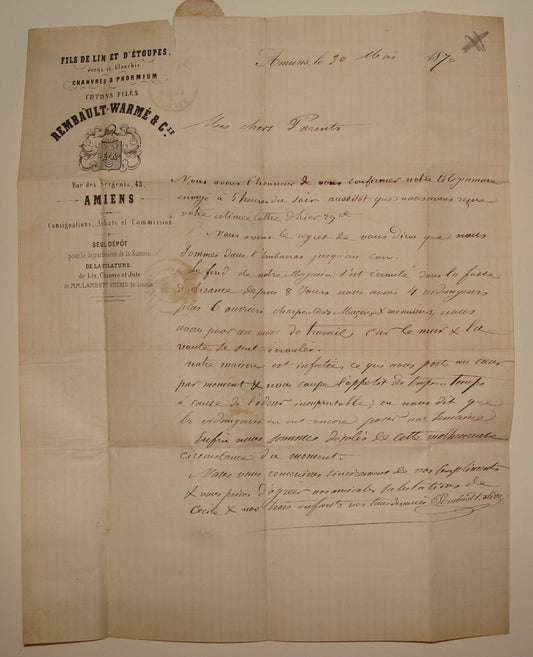 FILS DE LIN ET D'ÉTOUPES,
écrus et blanchis
CHANVRES & PHORMIUM
COTONS FILÉS
REMBAULT-WARMÉ & Cie
Rue des Sergents, 43
AMIENS
Consignations, Achats et Commission
SEUL DÉPÔT
pour le département de la Somme
DE LA FILATURE
de Lin, Chanvre et Jute
de MM.
Amiens, le 30 Mai 1870
Mes chers Parents
Nous avons l'honneur de vous confirmer notre télégramme
envoyé à 5 heures du soir aussitôt que nous avons reçu
votre estimée lettre d'hier 29 ct
Nous avons le regret de vous dire que nous
sommes dans l'embarras jusqu'au cou.
Le fond de notre Magasin s'est écroulé dans la fosse
d'aisance depuis 8 Jours nous avons 4 vidangeurs
plus 6 ouvriers charpentiers Maçons & menuisiers, nous
avons pour un mois de travail, car le mur & la
voute se sont écroulés.
notre maison est infectée, ce que nous porte au cœur
par moment & nous coupe l'appétit de temps en temps
à cause de l'odeur insupportable; on nous dit que
les vidangeurs en ont encore pour une semaine
Enfin nous sommes désolés de cette malheureuse
circonstance du moment.
Nous vous remercions sincèrement de vos compliments
& vous prions d'agréer nos amicales salutations de
Cecile & nos trois enfants vos tous dévoués